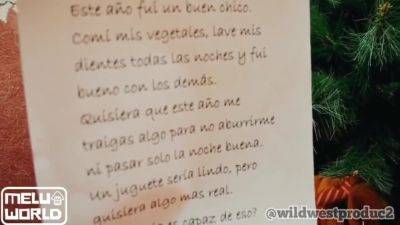 Este año fui un buen chico.
Comí mis vegetales, lave mis
dientes todas las noches y fui
bueno con los demás.
Quisiera que este año me
traigas algo para no aburrirme
ni pasar solo la noche buena.
Un juguete sería lindo, pero
quisiera algo mas real.
es capaz de eso?
MELU
WORLD
@wildwestproduc2